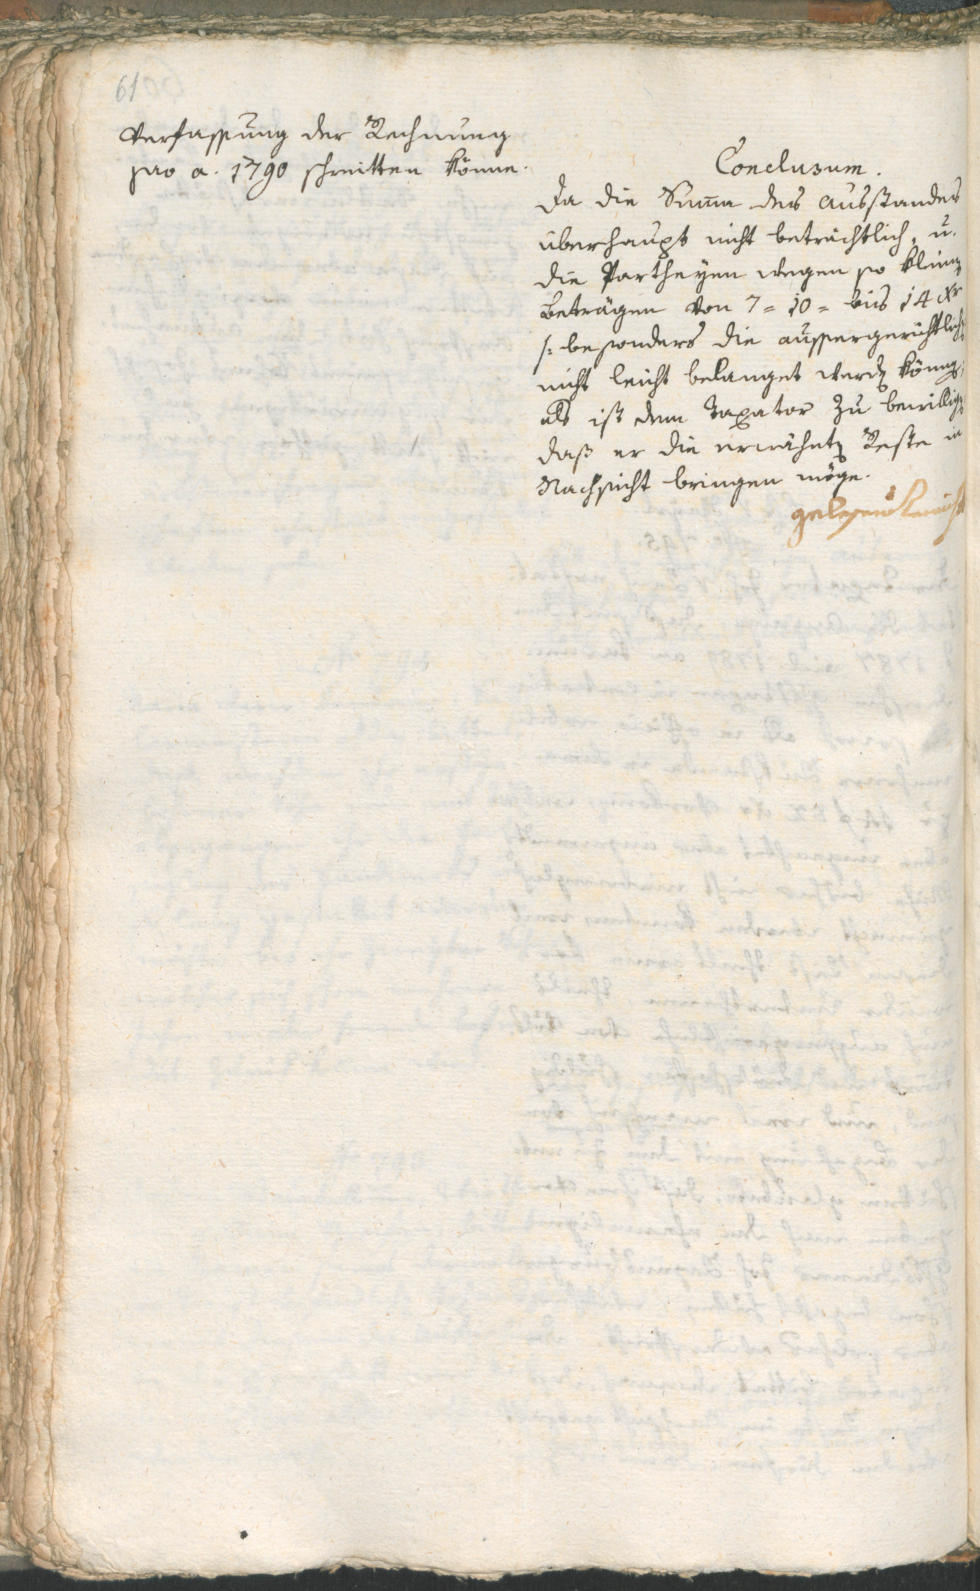 61
Verfassung der Rechnung
pro a. 1790 schreitten könne.
Conclusum.
Da die Summa des Ausstandes
überhaupt nicht beträchtlich, u.
die Partheyen wegen so kleinen
Beträgen von 7 = 10 = bis 14 Xr
/: besonders die aussergerichtlich
nicht leicht belanget werden können,
als ist dem Taxator zu bewilligen
daß er die erwähnten Reste in
Nachsicht bringen möge.